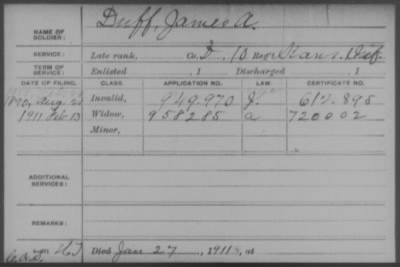 Duff, James A.
NAME OF SOLDIER:
SERVICE: Late rank, Co. F, 10 Reg't Kans. Inf.
TERM OF SERVICE: Enlisted , 1 Discharged , 1
DATE OF FILING. CLASS. APPLICATION NO. LAW. CERTIFICATE NO.
1890, Aug. Invalid, 949.970 J. 612.895
1911 Feb 13 Widow, 958285 a 720002
Minor,
ADDITIONAL SERVICES:
REMARKS:
Died Jan 27, 1911, at